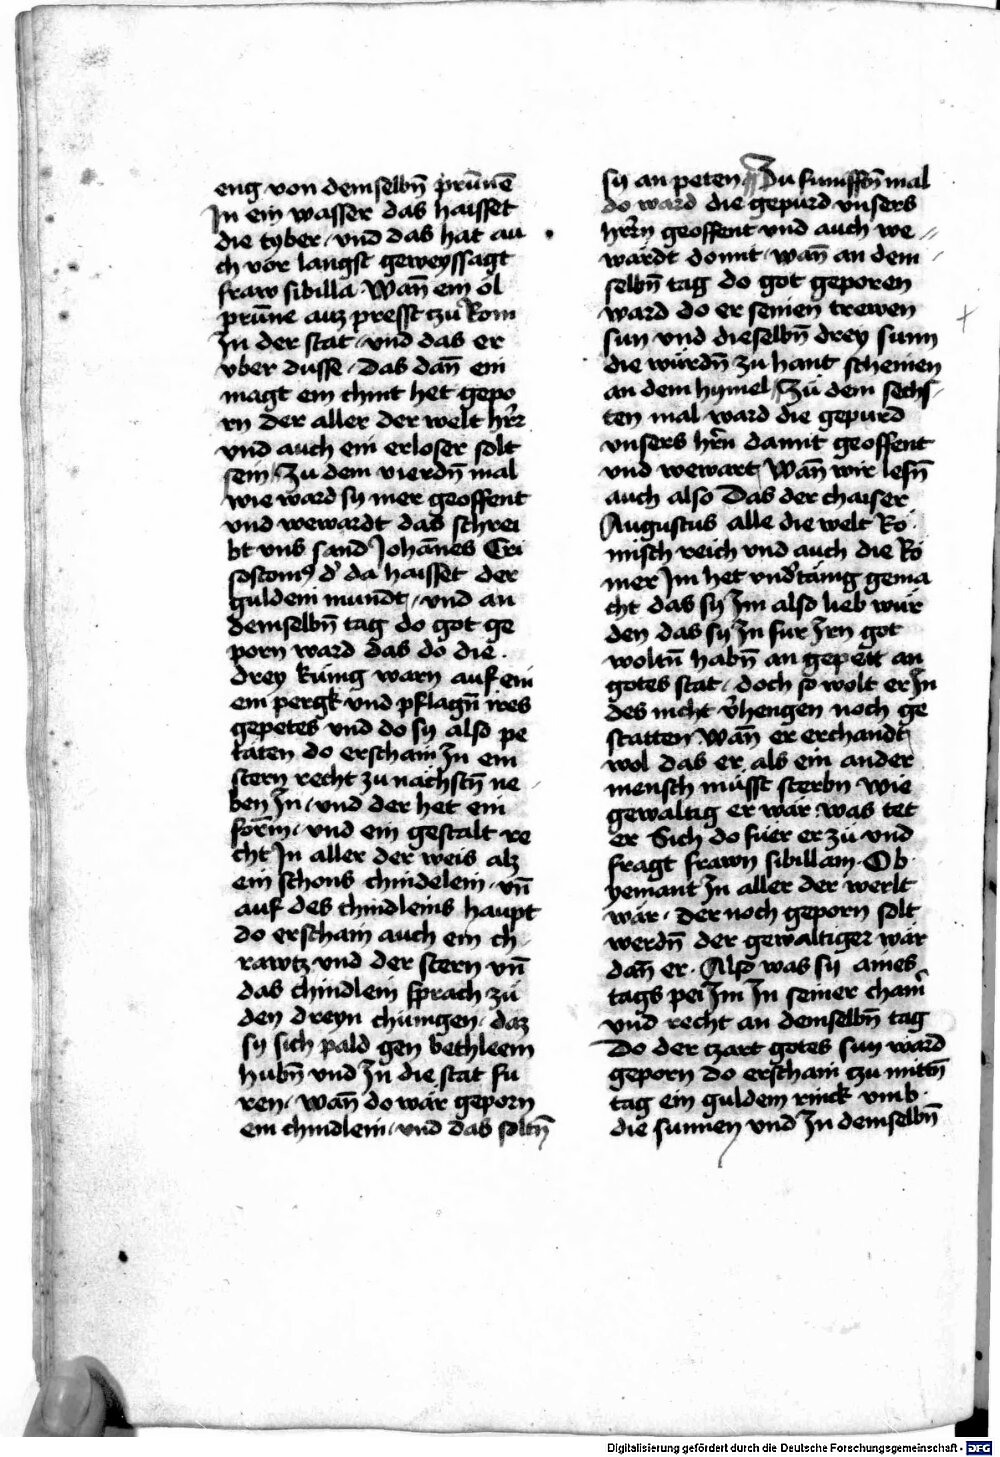 eng von demselbn̄ prūnē
In ein wasser das haisset
die tyber / vnd das hat au
ch vor langst geweyssagt
fraw sibilla Wan̄ ein ol
prūne auz presst tzu Rom
In der stat / vnd das er
vber dusse / Das dan̄ ein
magt ein chint het gepo
rn der aller der welt hr̄r
vnd auch ein erloser solt
sein / Zu dem vierdn̄ mal
wie ward sy mer geoffent
vnd wewardt das schrei
bt vns sand Johān̄es Cri
sostomꝰ d' da haisset der
guldein mundt / vnd an
demselbn̄ tag do got ge
porn ward das do die
drey kunig warn auf ein
em pergk vnd pflagn̄ ires
gepetes vnd do sy also pe
taten do erschain In ein
stern recht zu nachstn̄ ne
ben In / vnd der het ein
form / vnd ein gestalt re
cht In aller der weis alz
ein schons chindelein / vn̄
auf des chindleins haupt
do erschain auch ein ch
rawtz vnd der stern vn̄
das chindlein sprach zu
den dreyn chunigen / daz
sy sich pald gen bethleem
hubn̄ vnd In die stat fu
ren / wan̄ do wār geporn
ein chindlein / vnd das soltn̄
sy an peten Zu funfften̄ mal
do ward die gepurd vnsers
hr̄rn geoffent vnd auch we
wardt donnt / wan̄ an dem
selbn̄ tag do got geporen
ward do er seinen trewen
sun vnd dieselbn̄ drey sunn
die wurdn̄ zu hant scheinen
an dem hymel / Zu dem sechs
ten mal ward die gepurd
vnsers hr̄n damit geoffent
vnd wewart / Wan̄ wir lesn̄
auch also Das der chaiser
Augustus alle die welt Ro
misch reich vnd auch die Ro
mer Im het vnd'tānig gema
cht das sy Im also lieb wur
den das sy In fur Irn got
woltn̄ habn̄ an gepett an
gotes stat / doch so wolt er In
des nicht v'hengen noch ge
statten Wan̄ er erchandt
wol das er als ein ander
mensch musst sterbn wie
gewaltig er wār was tet
er Sich do fuer er zu vnd
fragt frawn sibillam Ob
yemant In aller der werlt
wār / Der noch geporn solt
werdn̄ der gewaltiger wār
dan̄ er Also was sy aines
tags pei Im In seiner cham̄
vnd recht an demselbn̄ tag
Do der czart gotes sun ward
geporn do erschain tzu mittn̄
tag ein guldem rinck vmb
die sunnen vnd In demselbn̄
Digitalisierung gefördert durch die Deutsche Forschungsgemeinschaft - DFG